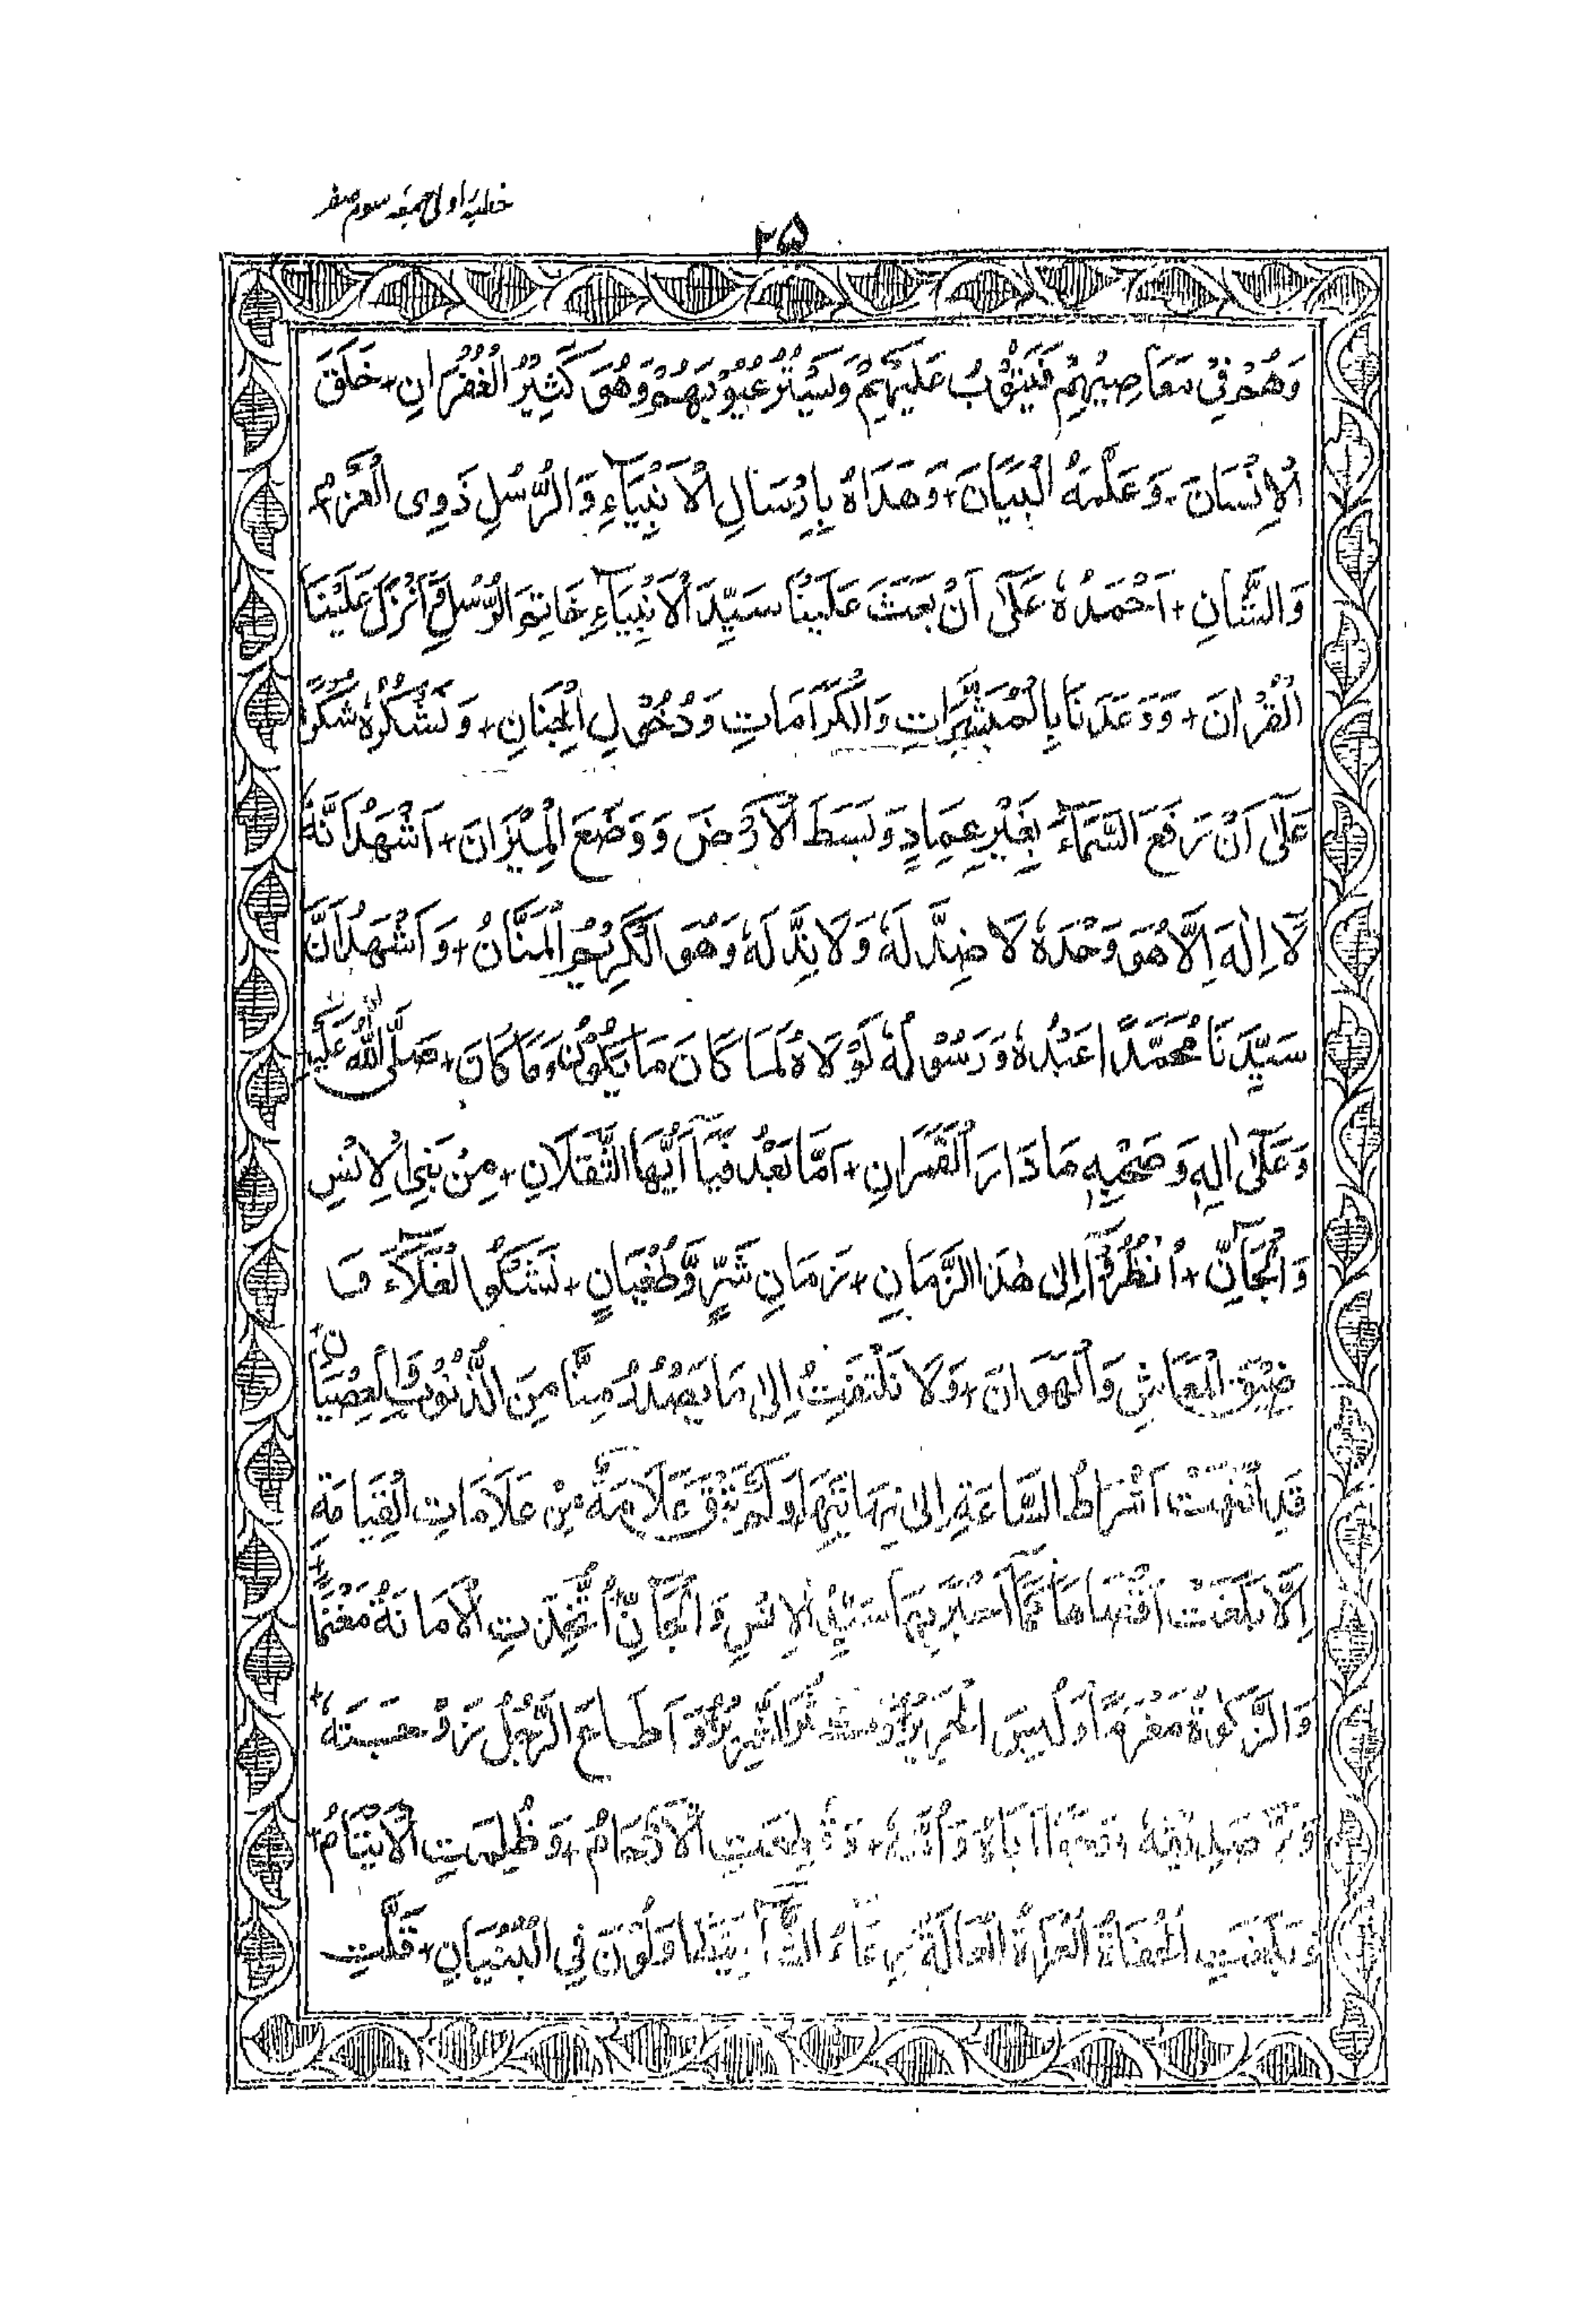 خطبہ اولی جمعہ سوم صفر
۲۵
وَهُمْ فِيْ مَعَاصِيْهِمْ فَيَتُوْبُ عَلَيْهِمْ وَيَسْتُرُ عُيُوْبَهُمْ وَهُوَ كَثِيْرُ الْغُفْرَانِ + خَلَقَ
الْاِنْسَانَ + وَعَلَّمَهُ الْبَيَانَ + وَهَدَاهُ بِاِرْسَالِ الْاَنْبِيَآءِ وَالرُّسُلِ ذَوِى الْعَزْمِ
وَالشَّانِ + اَحْمَدُهٗ عَلٰٓى اَنْ بَعَثَ عَلَيْنَا سَيِّدَ الْاَنْبِيَآءِ خَاتِمَ الرُّسُلِ وَاَنْزَلَ عَلَيْنَا
الْقُرْاٰنَ + وَوَعَدَنَا بِالْمُبَشِّرَاتِ وَالْكَرَامَاتِ وَدُخُوْلِ الْجِنَانِ + وَنَشْكُرُهٗ شُكْرًا
عَلٰٓى اَنْ رَفَعَ السَّمَآءَ بِغَيْرِ عِمَادٍ وَبَسَطَ الْاَرْضَ وَوَضَعَ الْمِيْزَانَ + اَشْهَدُ اَنَّهٗ
لَا اِلٰهَ اِلَّا هُوَ وَحْدَهٗ لَا ضِدَّ لَهٗ وَلَا نِدَّ لَهٗ وَهُوَ الْكَرِيْمُ الْمَنَّانُ + وَاَشْهَدُ اَنَّ
سَيِّدَنَا مُحَمَّدًا عَبْدُهٗ وَرَسُوْلُهٗ لَوْلَاهُ لَمَا كَانَ مَا يَكُوْنُ وَمَا كَانَ + صَلَّى اللّٰهُ عَلَيْهِ
وَعَلٰٓى اٰلِهٖ وَصَحْبِهٖ مَا دَارَ الْقَمَرَانِ + اَمَّا بَعْدُ فَيَآ اَيُّهَا الثَّقَلَانِ + مِنْ بَنِي الْاِنْسِ
وَالْجَآنِّ + اُنْظُرُوْٓا اِلٰى هٰذَا الزَّمَانِ + زَمَانِ شَرٍّ وَّطُغْيَانٍ + نَشْكُوا الْغَلَآءَ وَ
ضِيْقَ الْمَعَاشِ وَالْهَوَانَ + وَلَا نَلْتَفِتُ اِلٰى مَا يَصْدُرُ مِنَّا مِنَ الذُّنُوْبِ وَالْعِصْيَانِ +
قَدِ انْتَهَتْ اَشْرَاطُ السَّاعَةِ اِلٰى نِهَايَتِهَا وَلَمْ تَبْقَ عَلَامَةٌ مِنْ عَلَامَاتِ الْقِيَامَةِ
اِلَّا بَلَغَتْ اَقْصَاهَا كَمَآ اَخْبَرَ بِهَا سَيِّدُ الْاِنْسِ وَالْجَآنِّ + اُتُّخِذَتِ الْاَمَانَةُ مَغْنَمًا +
وَالزَّكٰوةُ مَغْرَمًا + وَلُبِسَ الْحَرِيْرُ وَاَطَاعَ الرَّجُلُ زَوْجَتَهٗ +
وَبَرَّ صَدِيْقَهٗ + وَجَفَا اَبَاهُ وَاُمَّهٗ + وَقُطِعَتِ الْاَرْحَامُ + وَظُلِمَتِ الْاَيْتَامُ +
الْحُفَاةُ الْعُرَاةُ الْعَالَةُ رِعَاءُ الشَّآءِ يَتَطَاوَلُوْنَ فِي الْبُنْيَانِ + قَلَّتِ